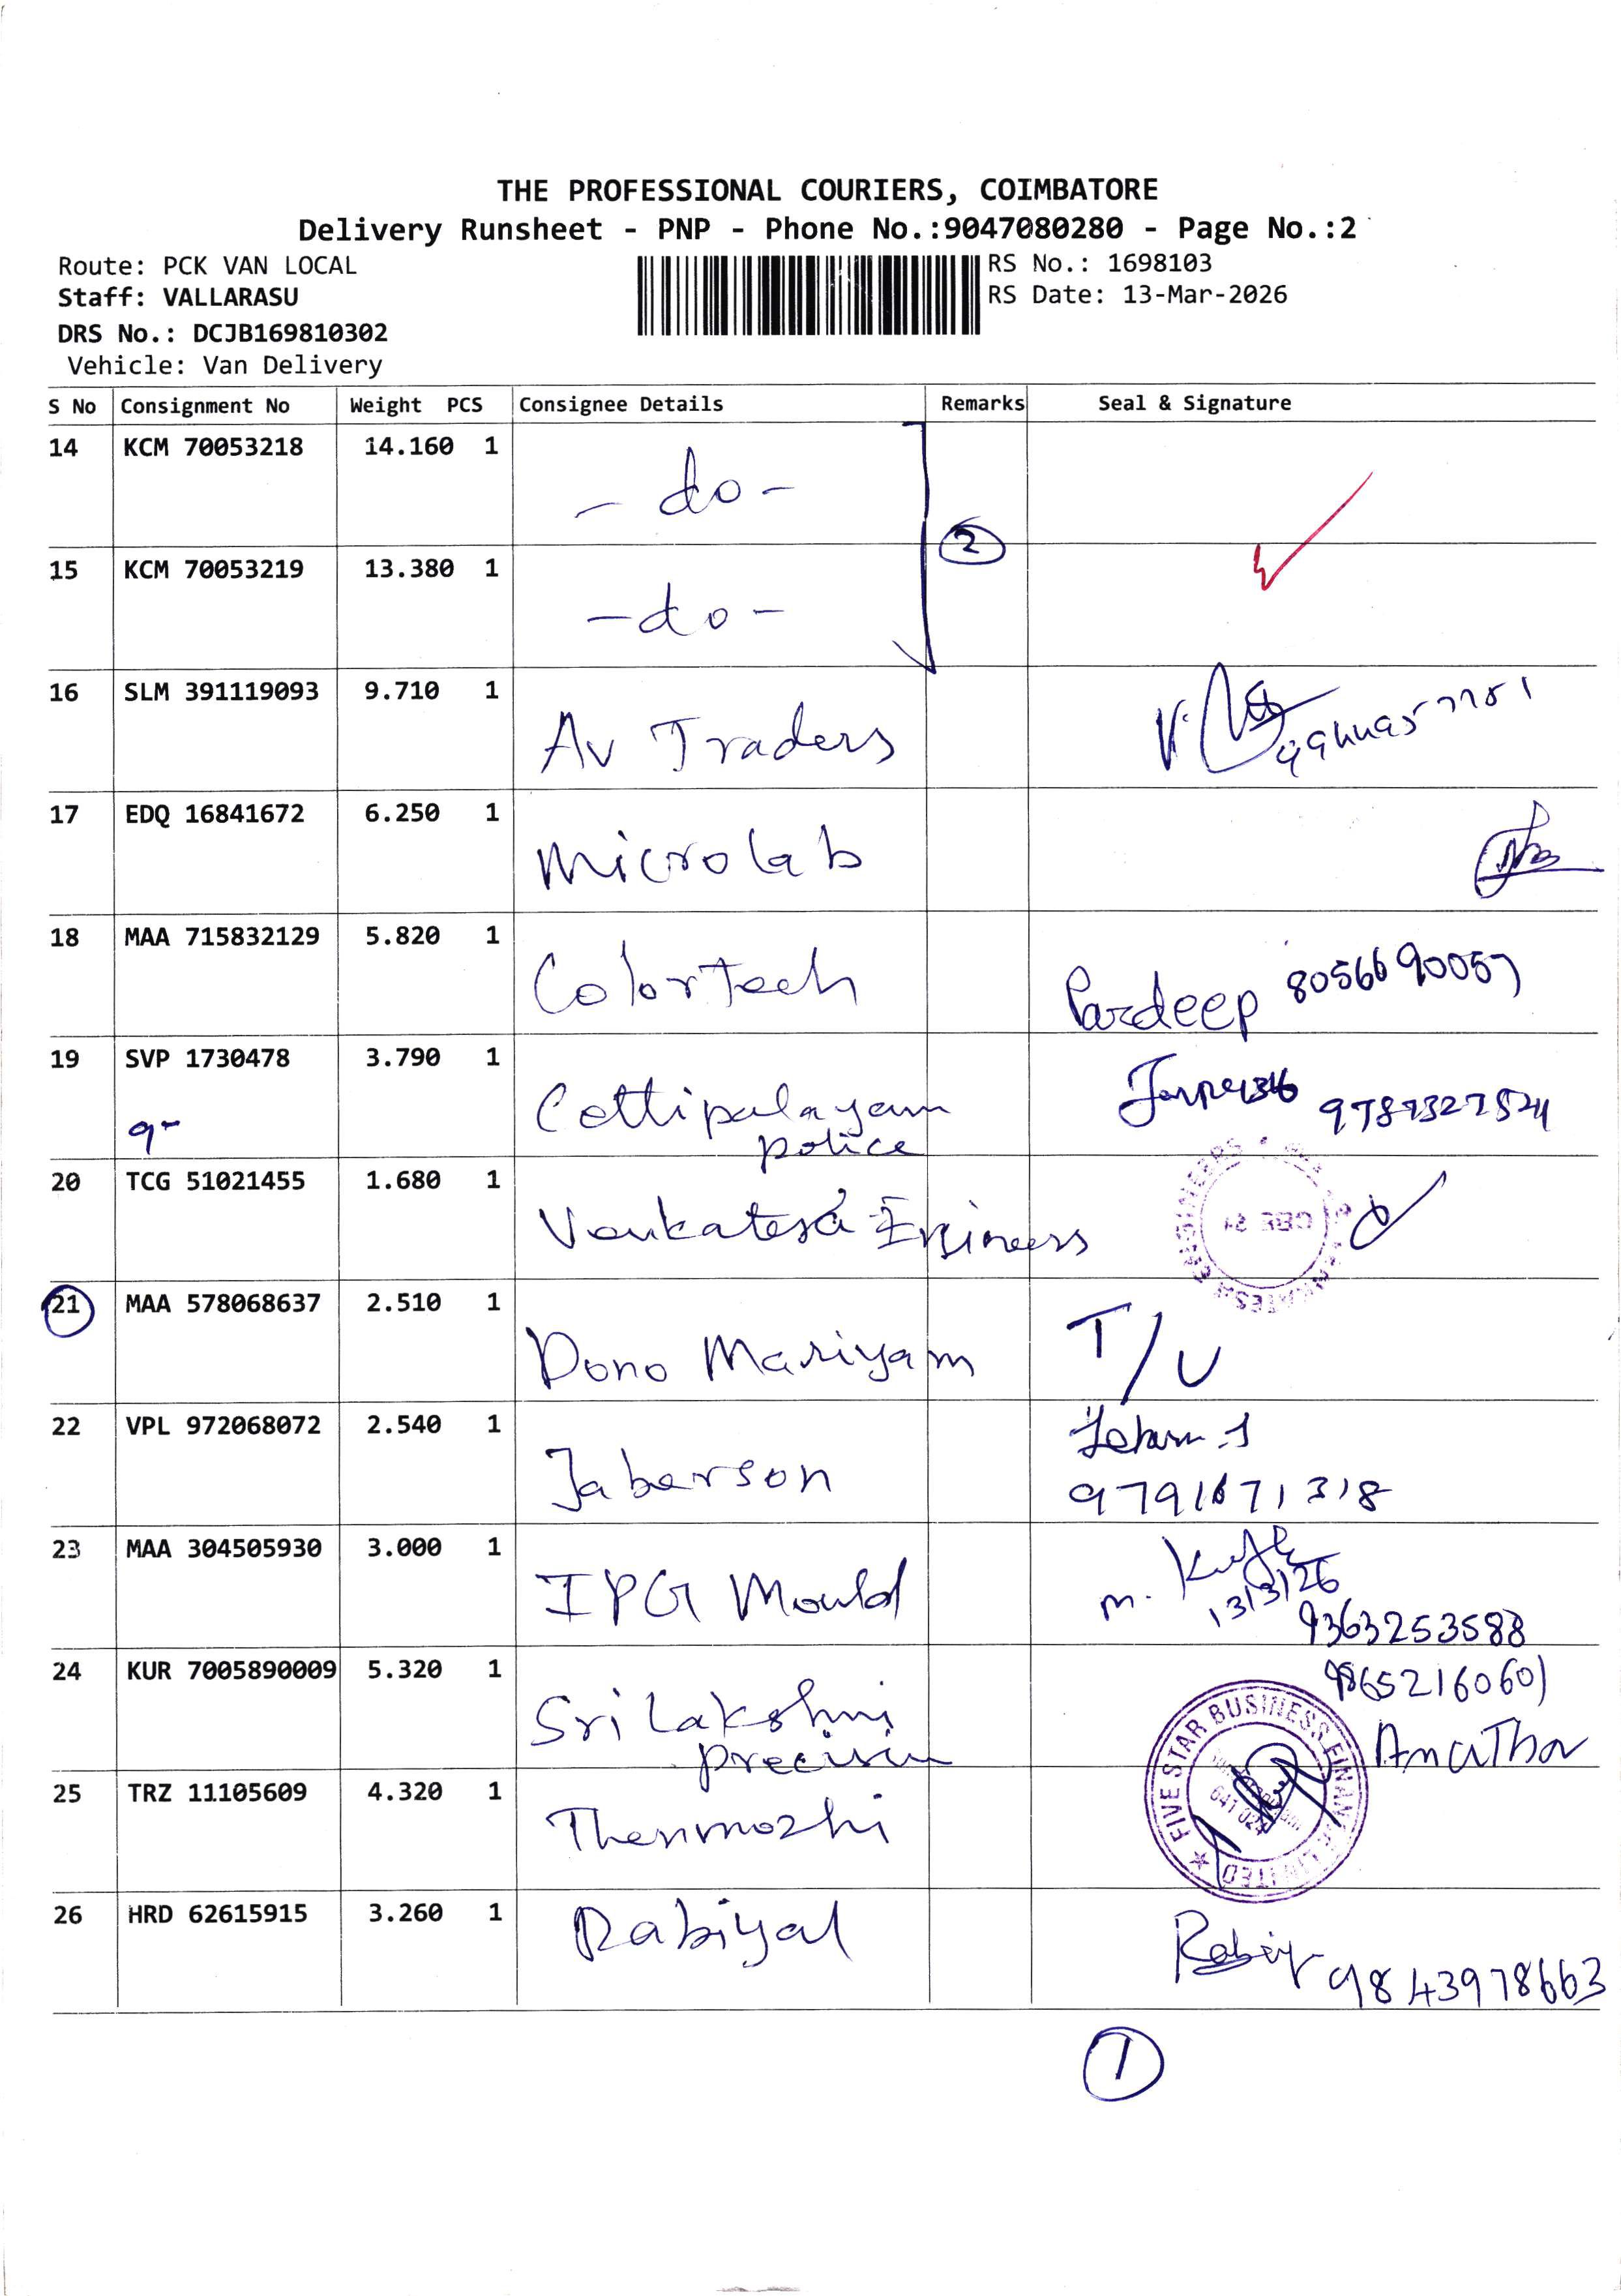 THE PROFESSIONAL COURIERS, COIMBATORE
Delivery Runsheet - PNP - Phone No.:9047080280 - Page No.:2
Route: PCK VAN LOCAL
RS No.: 1698103
Staff: VALLARASU
RS Date: 13-Mar-2026
DRS No.: DCJB169810302
Vehicle: Van Delivery
S No Consignment No Weight PCS Consignee Details Remarks Seal & Signature
14 KCM 70053218 14.160 1 - do -
2
15 KCM 70053219 13.380 1 - do -
16 SLM 391119093 9.710 1 Av Traders
17 EDQ 16841672 6.250 1 Microlab
18 MAA 715832129 5.820 1 Colortech Pardeep 8056690057
19 SVP 1730478 3.790 1 Cettipalayam
police
9-
20 TCG 51021455 1.680 1 Venkatesa Engineers
21 MAA 578068637 2.510 1 Dono Mariyam T/U
22 VPL 972068072 2.540 1 Jaberson
9791671318
23 MAA 304505930 3.000 1 IPG Mould m.
13/3/26
9363253588
24 KUR 7005890009 5.320 1 Sri Lakshmi
precision
98652160601
25 TRZ 11105609 4.320 1 Thenmozhi
FIVE STAR BUSINESS FINANCE LIMITED
26 HRD 62615915 3.260 1 Rabiyal
9843978663
1